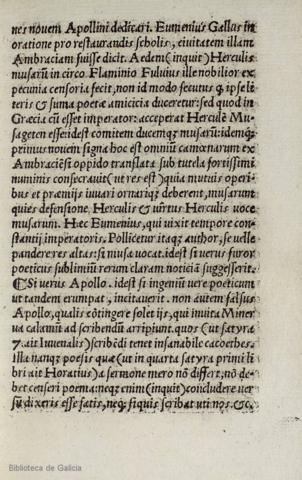 nes novem Apollini dedicari. Eumenius Gallus in
oratione pro restaurandis scholis, civitatem illam
Ambraciam fuisse dicit. Aedem (inquit) Herculis
musarū in circo. Flaminio Fulvius ille nobilior ex
pecunia censoria fecit, non id modo secutus q̃ ipse li
teris & suma poetæ amicicia duceretur: sed quod in
Græcia cū esset imperator: acceperat Herculē Mu-
sageten esse: idest comitem ducemq; musarū: idemq;
primus novem signa hoc est omniū camœnarum ex
Ambraciēsi oppido translata sub tutela fortissimi
numinis consecravit (ut res est) quia mutuis operi-
bus et præmijs iuvari ornariq; deberent, musarum
quies defensione Herculis & virtus Herculis voce
musarum. Hæc Eumenius, qui vixit tempore con-
stantij imperatoris. Pollicetur itaq; author, se velle
pandere res altas: si musa vocat. idest si verus furor
poeticus sublimiū rerum claram noticiā suggesserit.
¶ Si verus Apollo. idest si ingeniū vere poeticum
ut tandem erumpat, incitaverit. non autem falsus
Apollo, qualis cōtingere solet ijs, qui invita Miner
va calamū ad scribendū arripiunt. quos (ut satyra
7. ait Iuvenalis) scribēdi tenet insanabile cacoethes.
Illa nanq; poesis quæ (ut in quarta satyra primi li
bri ait Horatius) a sermone mero nō differt, nō de-
bet censeri poema: neq; enim (inquit) concludere ver
sū dixeris esse satis, neq; siquis scribat uti nos. &c.
Biblioteca de Galicia